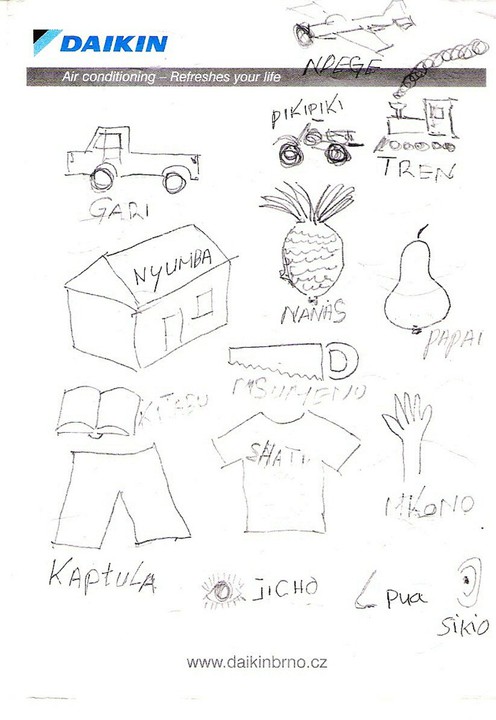 DAIKIN
Air conditioning – Refreshes your life
NDEGE
PIKIPIKI
TREN
GARI
NYUMBA
NANAS
PAPAI
MSUMENO
KITABU
SHATI
MKONO
KAPTULA
JICHO
PUA
SIKIO
www.daikinbrno.cz